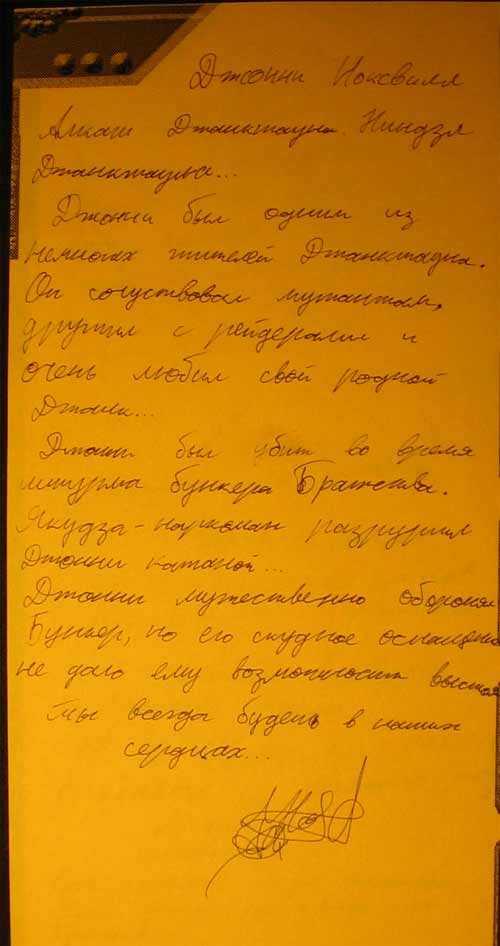 Джонни Ноксвилл
Алкаш Джанктауна. Ниндзя
Джанктауна...
Джонни был одним из
немногих жителей Джанктауна.
Он сочуствовал мутантам,
дружил с рейдерами и
очень любил свой родной
Джанк...
Джонни был убит во время
штурма бункера Братства.
Якудза-наркоман разрубил
Джонни катаной...
Джонни мужественно оборонял
Бункер, но его скудное оснащение
не дало ему возможность выстоя
Ты всегда будешь в наших
сердцах...